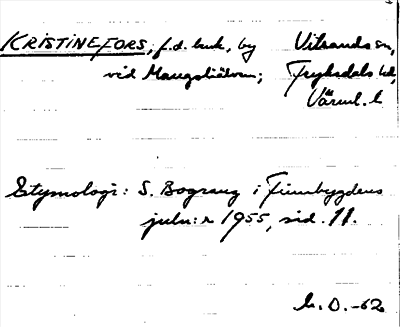 KRISTINEFORS, f.d. bruk, by Vitsands sn,
vid Mangslidälven; Fryksdals hd,
Värml. l.
Etymologi: S. Bograng i Finnbygdens
julnr 1955, sid. 11.
L. D. -62